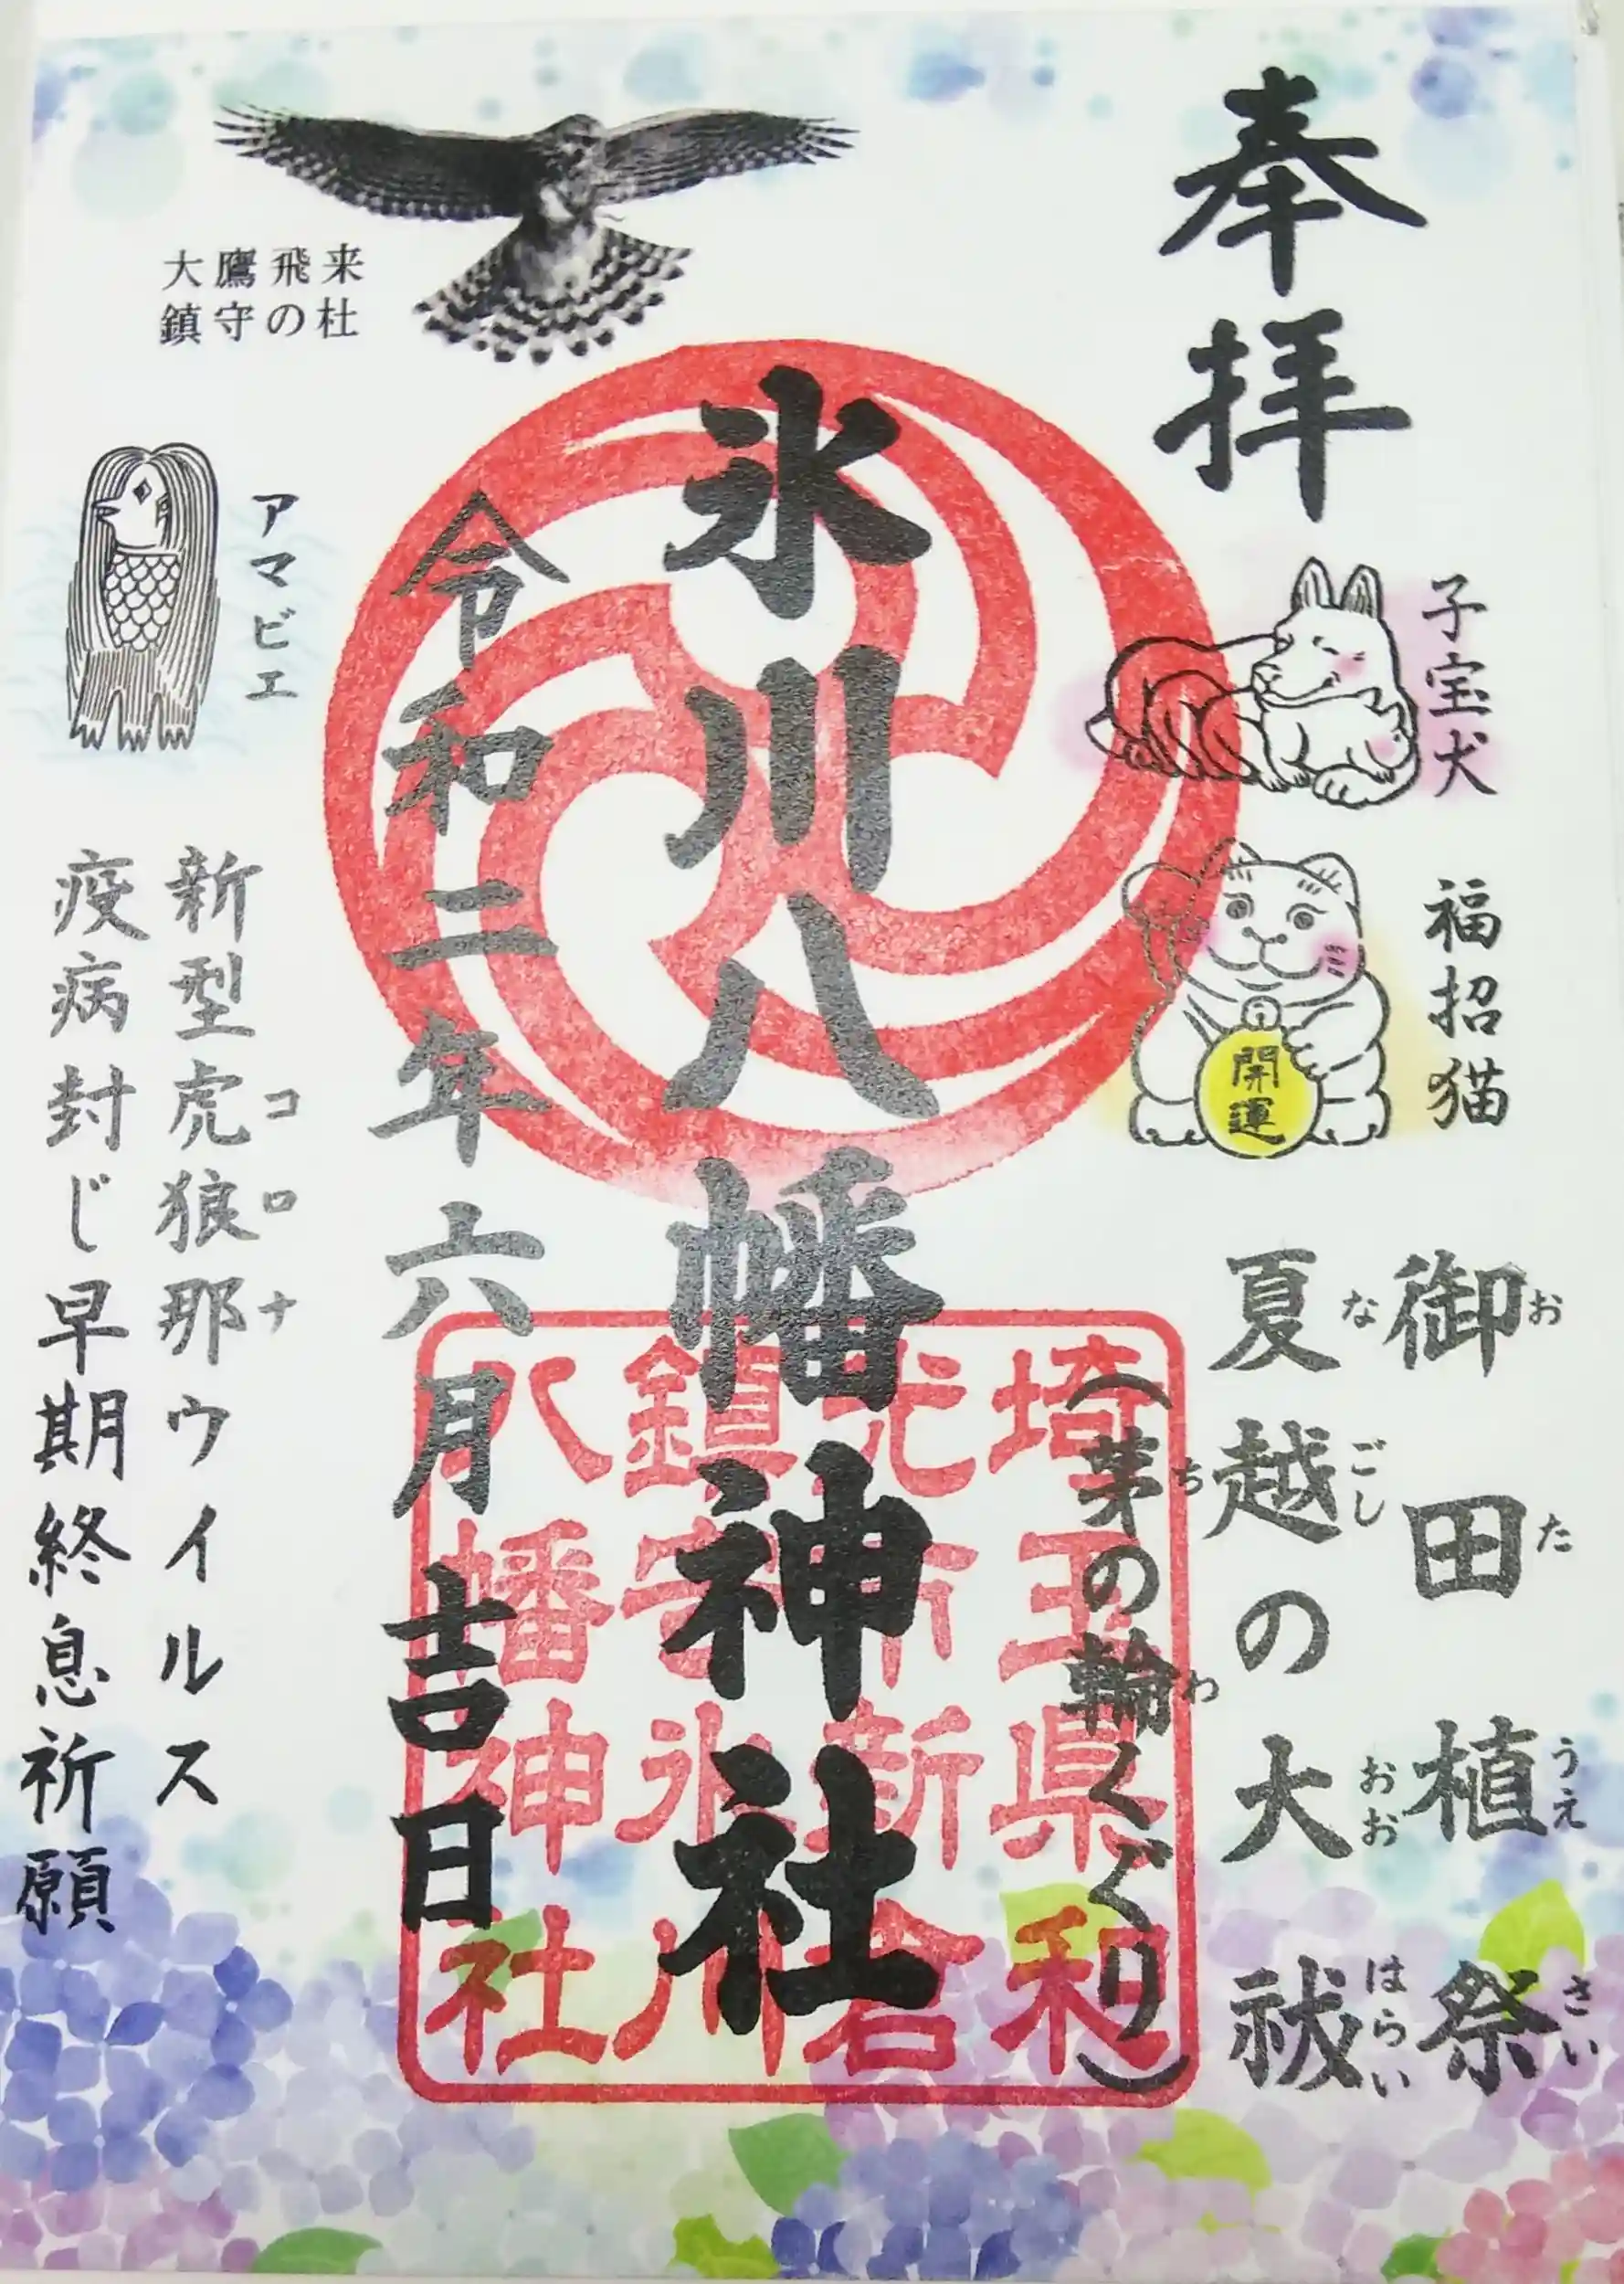 奉拝
子宝犬
福招猫
開運
御田植祭
おたうえさい
夏越の大祓
なごしおおはらい
(茅の輪くぐり)
ちわ
氷川八幡神社
埼玉県和
光市新倉
鎮守氷川
八幡神社
令和二年六月吉日
大鷹飛来
鎮守の杜
アマビエ
新型虎狼那ウイルス
コロナ
疫病封じ早期終息祈願